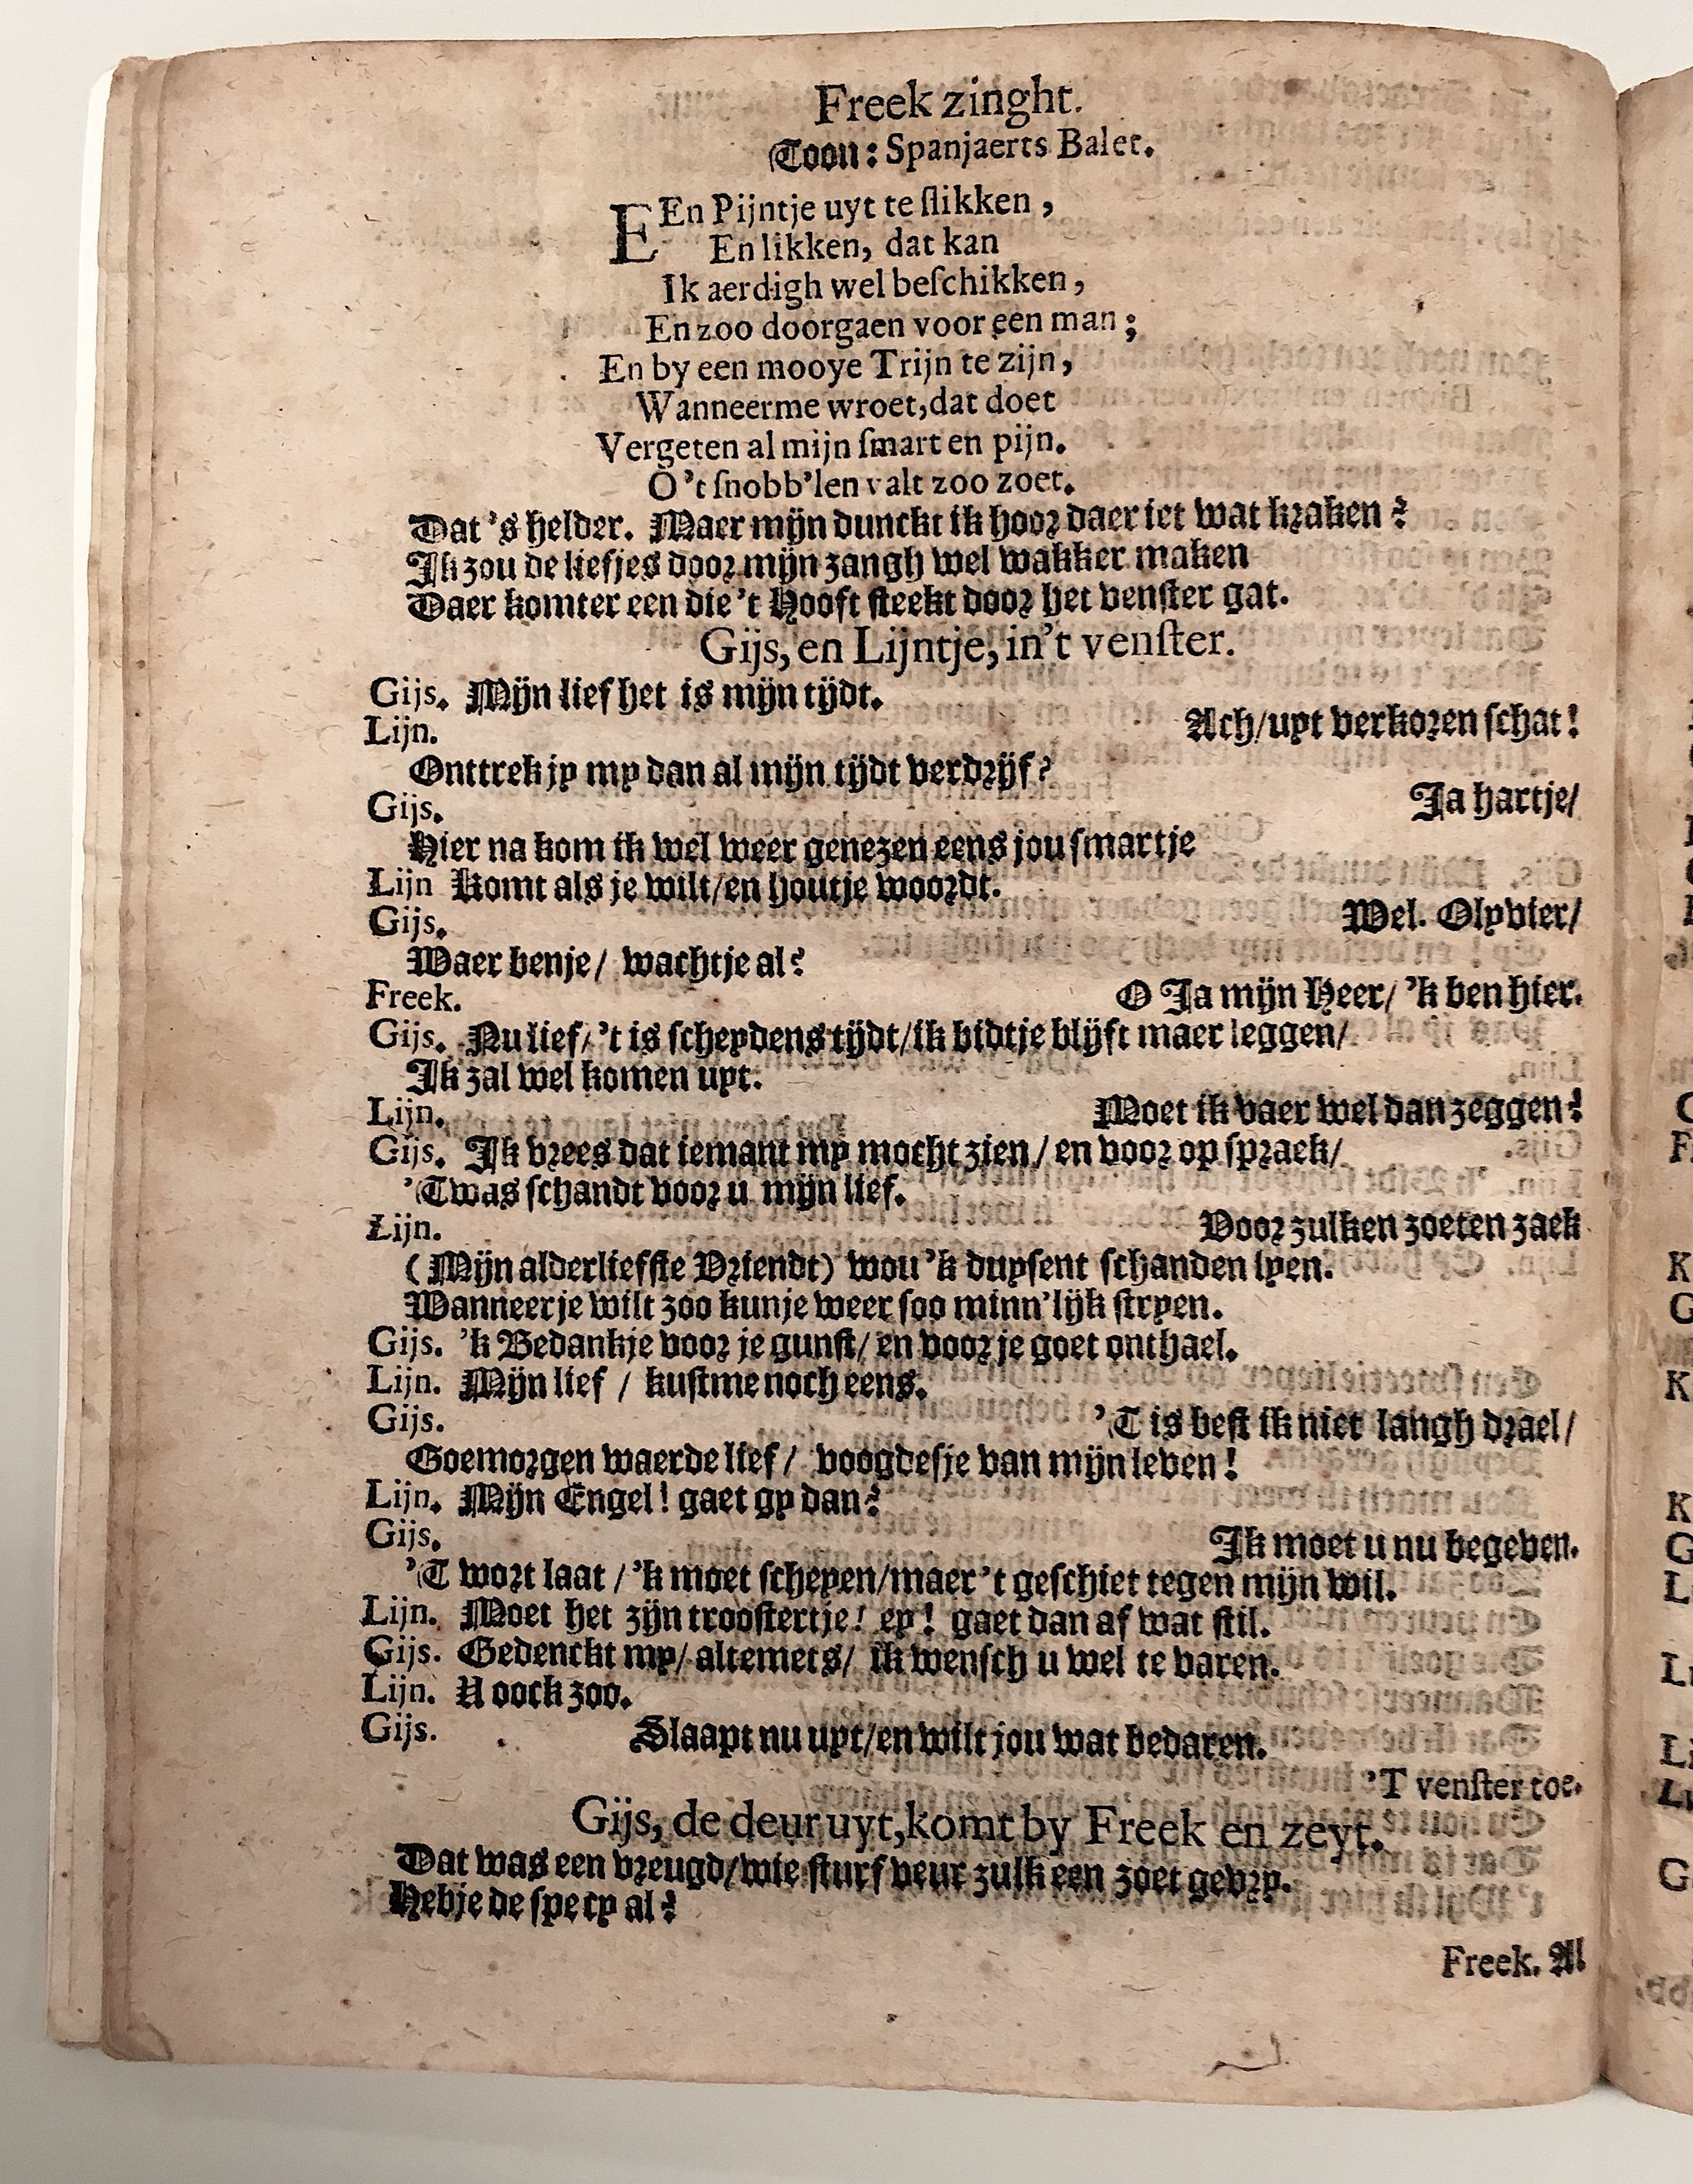 Freek zinght.
Toon: Spanjaerts Balet.
EEn Pijntje uyt te ſlikken,
En likken, dat kan
Ik aerdigh wel beſchikken,
En zoo doorgaen voor een man;
En by een mooye Trijn te zijn,
Wanneerme wroet, dat doet
Vergeten al mijn ſmart en pijn.
O 't ſnobb'len valt zoo zoet.
Dat 's helder. Maer mijn dunckt ik hoor daer iet wat kraken?
Ik zou de liefjes door mijn zangh wel wakker maken
Daer komter een die 't Hooft ſteekt door het venſter gat.
Gijs, en Lijntje, in't venſter.
Gijs. Mijn lief het is mijn tijdt.
Lijn. Ach/uyt verkozen ſchat!
Onttrek jy my dan al mijn tijdt verdrijf?
Gijs. Ja hartje/
Hier na kom ik wel weer genezen eens jou ſmartje
Lijn Komt als je wilt/en houtje woordt.
Gijs. Wel. Olyvier/
Waer benje/ wachtje al?
Freek. O Ja mijn Heer/ 'k ben hier.
Gijs. Nu lief/ 't is ſcheydens tijdt/ik bidtje blijft maer leggen/
Ik zal wel komen uyt.
Lijn. Moet ik vaer wel dan zeggen?
Gijs. Ik vrees dat iemant my mocht zien/ en voor op ſpraek/
'Twas ſchandt voor u mijn lief.
Lijn. Voor zulken zoeten zaek
(Mijn alderliefſte Vriendt) wou 'k duyſent ſchanden lyen.
Wanneerje wilt zoo kunje weer ſoo minn'lijk ſtryen.
Gijs. 'k Bedankje voor je gunſt/ en voor je goet onthael.
Lijn. Mijn lief / kuſtme noch eens.
Gijs. 'T is beſt ik niet langh drael/
Goemorgen waerde lief/ voogdeſje van mijn leven!
Lijn. Mijn Engel! gaet gy dan?
Gijs. Ik moet u nu begeven.
'T wort laat /'k moet ſcheyen/maer 't geſchiet tegen mijn wil.
Lijn. Moet het zijn trooſtertje! ey! gaet dan af wat ſtil.
Gijs. Gedenckt my/ altemets/ ik wenſch u wel te varen.
Lijn. U oock zoo.
Gijs. Slaapt nu uyt/en wilt jou wat bedaren.
'T venſter toe.
Gijs, de deur uyt, komt by Freek en zeyt.
Dat was een vreugd/wie ſturf veur zulk een zoet gevry.
Hebje de ſpecy al?
Freek. Al